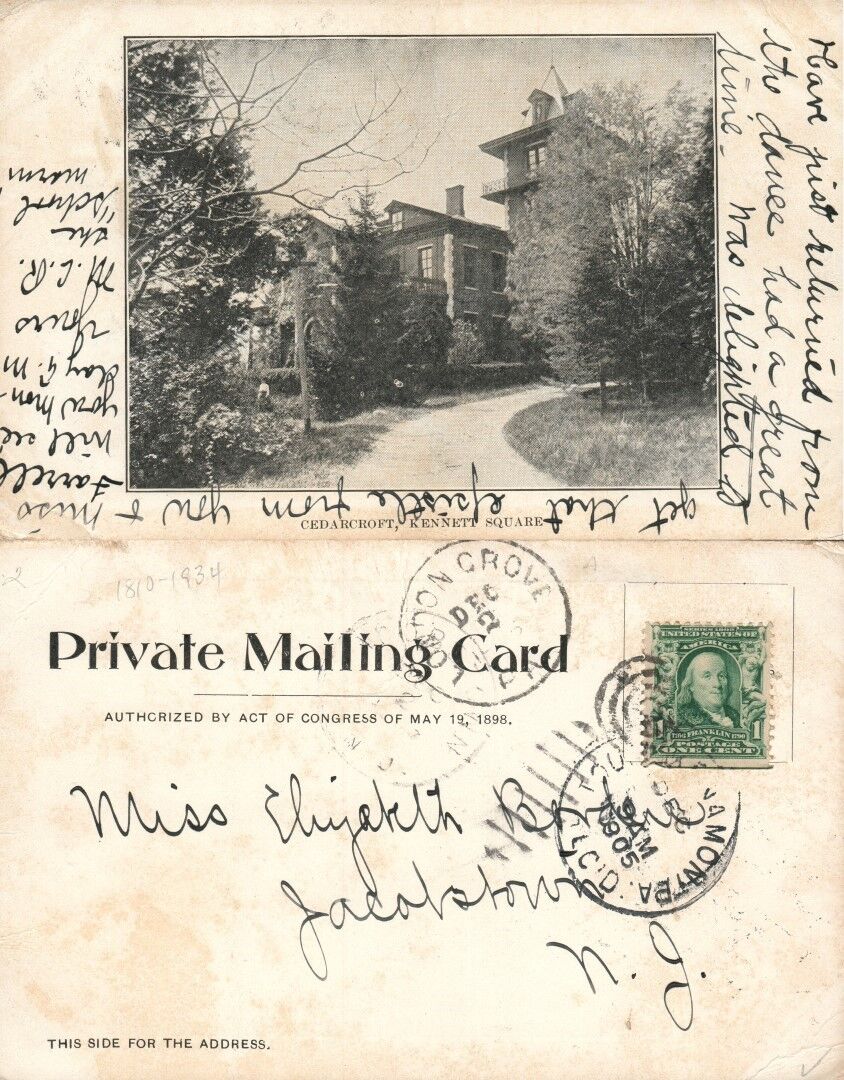 Have just returned from
the dance had a great
time. Was delighted to
get that epistle from you & miss
Farrell
Will see
you Mon-
day A.M
Yours
M. L. R.
the
"School
marm
CEDARCROFT, KENNETT SQUARE
2
1810-1934
A
LONDON GROVE
DEC
PA.
Private Mailing Card
AUTHORIZED BY ACT OF CONGRESS OF MAY 19, 1898.
SERIES 1902
UNITED STATES OF
AMERICA
1 1
1706 FRANKLIN 1790
POSTAGE
ONE CENT
DEC
9 AM
1905
REC'D.
Miss Elizabeth
Jacobstown
N. J.
THIS SIDE FOR THE ADDRESS.